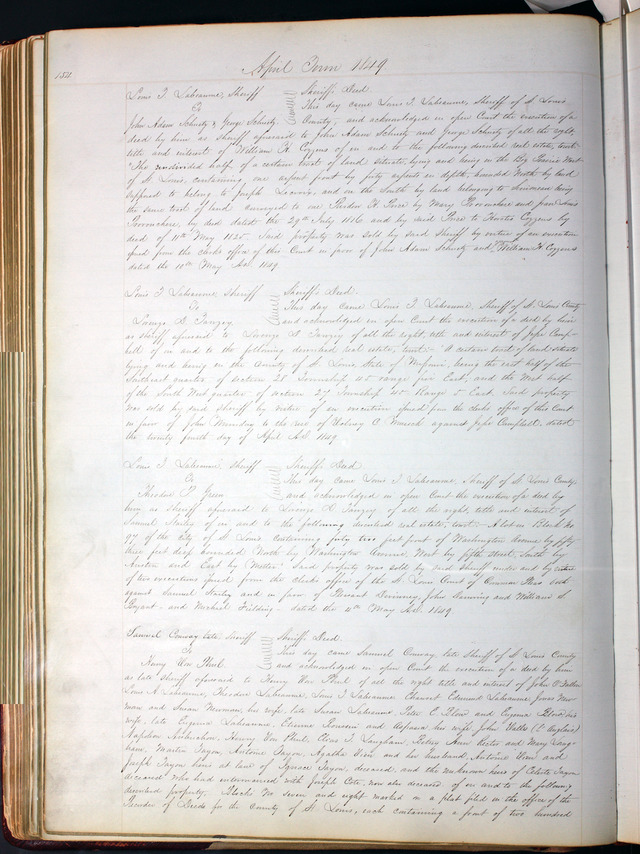 150
April Term 1849
Louis T. Labeaume, Sheriff } Sheriffs Deed.
To
This day came Louis T. Labeaume, Sheriff of St Louis
John Adam Schuetz & George Schuetz
County, and acknowledged in open Court the execution of a
deed by him as sheriff aforesaid to John Adam Schuetz and George Schuetz of all the right,
title and interest of William H. Cozzens of in and to the following described real estate, towit:
"The undivided half of a certain tract of land, situate, lying and being in the Big Prairie West
of St Louis, containing one arpent front by forty arpents in depth, bounded North by land
supposed to belong to Joseph and on the South by land belonging to being
the same tract of land conveyed to one Pierce by Mary Provenchere and Jean Louis
Provenchere, by deed dated the 29th July 1816 and by said Pierce to Cozzens by
deed of 11th May 1825. Said property was sold by said sheriff by virtue of an execution
issued from the clerks office of this Court in favor of John Adam Schuetz and William H. Cozzens
dated the 11th May A.D. 1849.
Louis T. Labeaume, Sheriff } Sheriffs Deed.
To
This day came Louis T. Labeaume, Sheriff of St Louis County
and acknowledged in open Court the execution of a deed by him
as sheriff aforesaid to of all the right, title and interest of Jesse Camp-
bell of in and to the following described real estate, towit: A certain tract of land situate
lying and being in the County of St. Louis, State of Missouri, being the east half of the
Southeast quarter of section 28 Township 45 range five East, and the West half
of the South West quarter of section 27 Township 45 Range 5 East. Said property
was sold by said sheriff by virtue of an execution issued from the clerks office of this Court
in favor of John to the use of C. against Jesse Campbell, dated
the twenty fourth day of April A.D. 1849
Louis T. Labeaume, Sheriff } Sheriffs Deed
To
This day came Louis T. Labeaume, Sheriff of St Louis County,
Theodore P. Green
and acknowledged in open Court the execution of a deed by
him as sheriff aforesaid to of all the right, title and interest of
Samuel of in and to the following described real estate, towit: A lot in Block No.
97 of the City of St Louis containing forty two feet front of Washington Avenue by fifty
three feet deep bounded North by Washington Avenue, West by fifth street, South by
Austin and East by Said property was sold by said sheriff under and by virtue
of two executions issued from the clerks office of the St Louis Court of Common Pleas both
against Samuel and in favor of John and William S.
Bryant and Michael Fielding dated the 4th May A.D. 1849
Samuel Conway late Sheriff } Sheriffs Deed.
To
This day came Samuel Conway, late Sheriff of St Louis County
Henry Von Phul
and acknowledged in open Court the execution of a deed by him
as late sheriff aforesaid to Henry Von Phul of all the right title and interest of John P.
Louis A. Labeaume, Theodore Labeaume, Louis T. Labeaume Edmund Labeaume, James New-
man and Susan Newman his wife, late Susan Labeaume, Peter E. Blow and Eugenia Blow his
wife, late Eugenia Labeaume, Etienne and his wife, John
Henry Von Phul, Elias T. Langham, Betsey Ann Rector and Mary Lang-
ham, Martin Tayon, Antoine Tayon, Agatha and her husband, Antoine and
Joseph Tayon heirs at law of Ignace Tayon, deceased, and the unknown heirs of Celeste Tayon
deceased who had intermarried with Joseph Cote, now also deceased of in and to the following
described property. Blocks No seven and eight marked on a plat filed in the office of the
Recorder of Deeds for the County of St Louis, each containing a front of two hundred